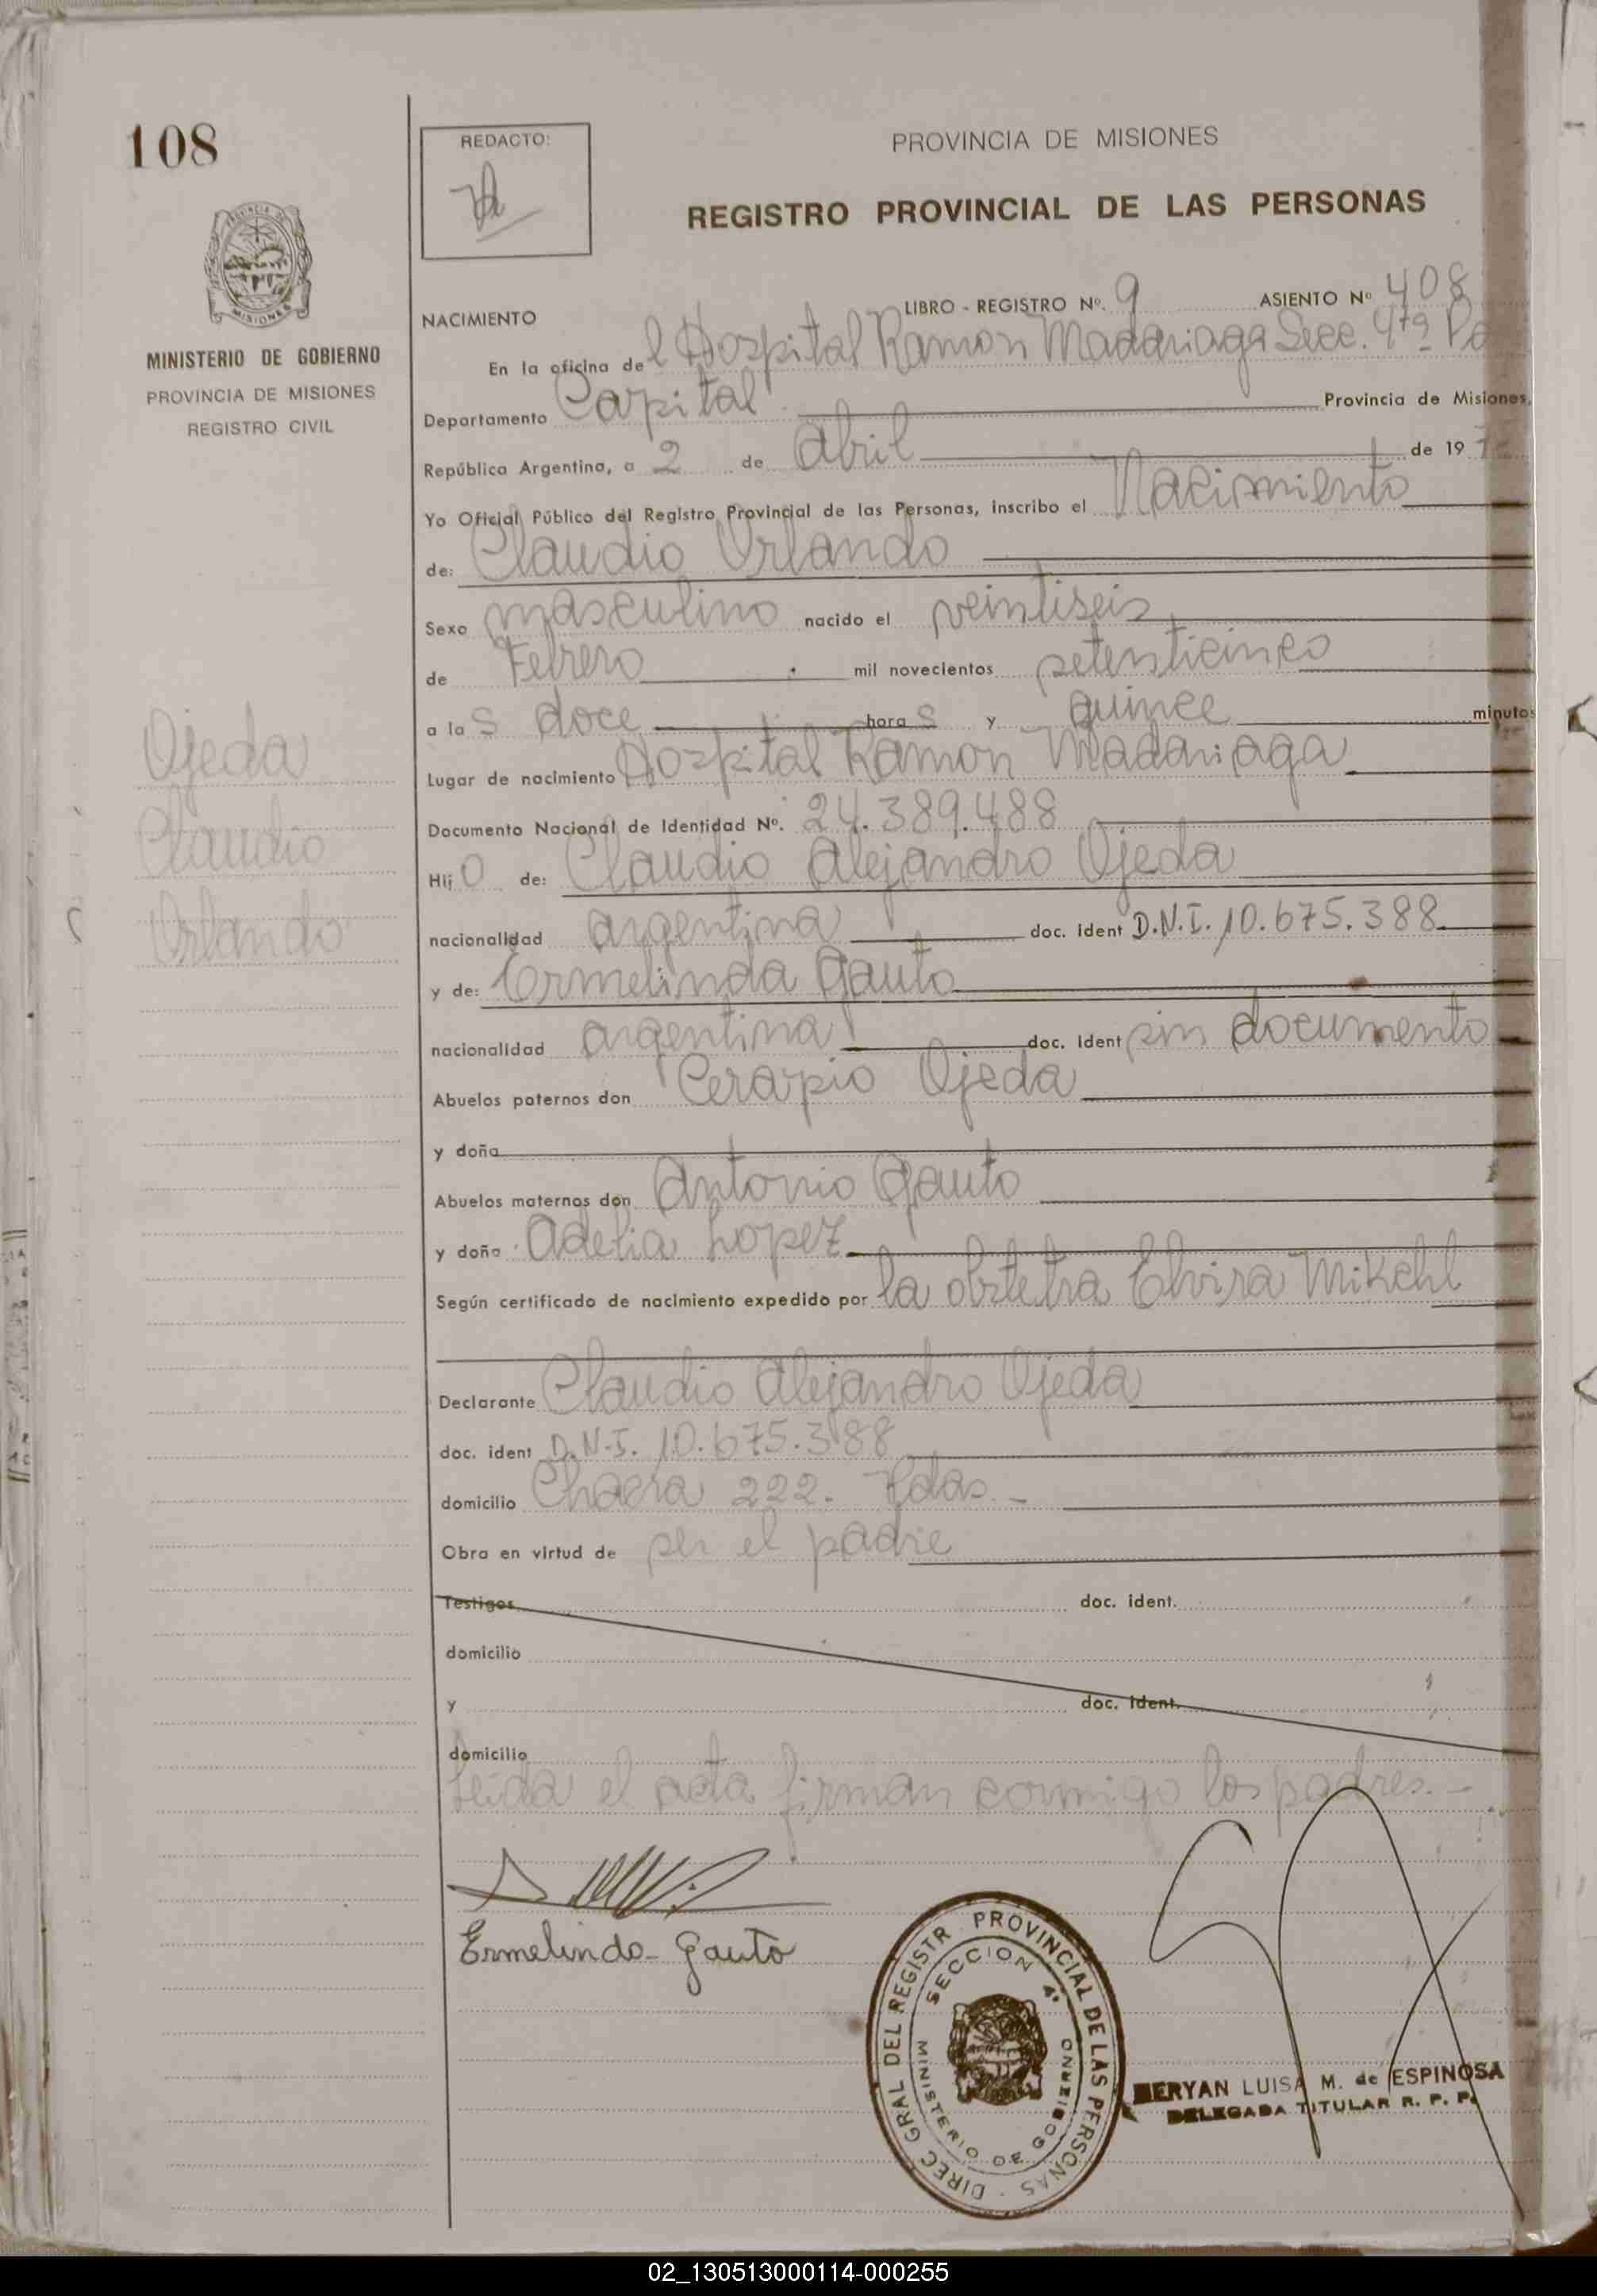 108
REDACTO:
PROVINCIA DE MISIONES
REGISTRO PROVINCIAL DE LAS PERSONAS
MISIONES
MINISTERIO DE GOBIERNO
PROVINCIA DE MISIONES
REGISTRO CIVIL
NACIMIENTO LIBRO - REGISTRO Nº. 9 ASIENTO Nº 408
En la oficina del Hospital Ramon Madariaga Secc. 4ta
Departamento Capital Provincia de Misiones,
República Argentina, a 2 de Abril de 197
Yo Oficial Público del Registro Provincial de las Personas, inscribo el Nacimiento
de: Claudio Orlando
Sexo masculino nacido el veintiseis
de Febrero mil novecientos setenticinco
a las doce horas y quince minutos
Lugar de nacimiento Hospital Ramon Madariaga
Documento Nacional de Identidad Nº. 24.389.488
Hijo de: Claudio Alejandro Ojeda
nacionalidad argentina doc. ident D.N.I. 10.675.388
y de: Ermelinda Gauto
nacionalidad argentina doc. ident sin documento
Abuelos paternos don Cerapio Ojeda
y doña
Abuelos maternos don Antonio Gauto
y doña Adelia Lopez
Según certificado de nacimiento expedido por la obstetra Elvira Mikehl
Declarante Claudio Alejandro Ojeda
doc. ident D.N.I. 10.675.388
domicilio Chacra 222. Pdas.-
Obra en virtud de ser el padre
Testigos doc. ident.
domicilio
y doc. ident.
domicilio
Leida el acta firman conmigo los padres.-
Ojeda
Claudio
Orlando
Ermelinda Gauto
DIREC GRAL DEL REGISTR PROVINCIAL DE LAS PERSONAS
SECCION 4ª
MINISTERIO DE GOBIERNO
NERYAN LUISA M. de ESPINOSA
DELEGADA TITULAR R. P. P.
02_130513000114-000255